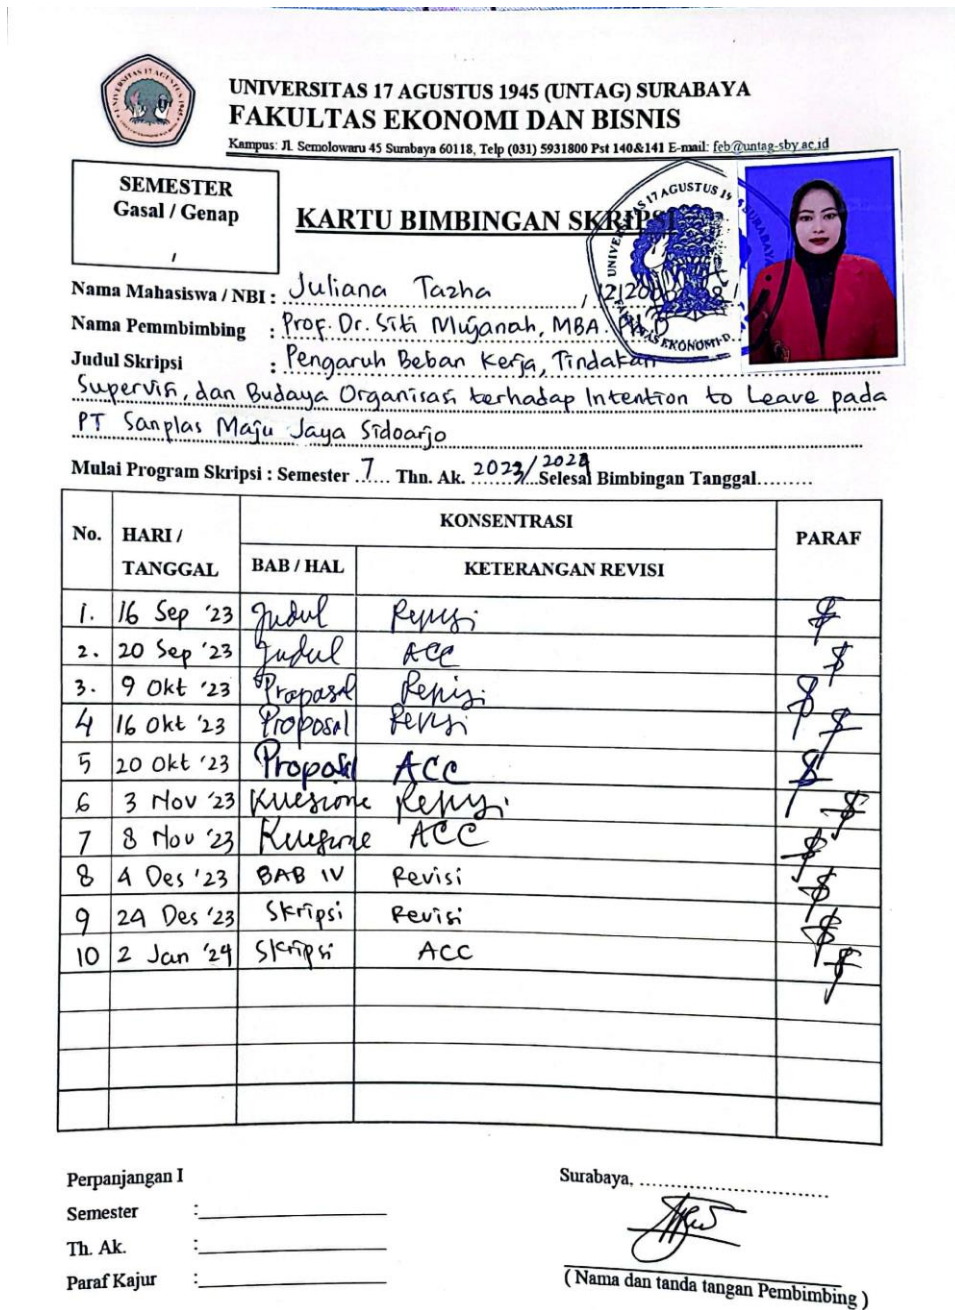 UNIVERSITAS 17 AGUSTUS 1945 (UNTAG) SURABAYA
FAKULTAS EKONOMI DAN BISNIS
Kampus: Jl. Semolowaru 45 Surabaya 60118, Telp (031) 5931800 Pst 140&141 E-mail: feb@untag-sby.ac.id
SEMESTER
Gasal / Genap
/
KARTU BIMBINGAN SKRIPSI
Nama Mahasiswa / NBI : Juliana Tazha /
Nama Pemmbimbing : Prof. Dr. Siti Mujanah, MBA. Ph.D
Judul Skripsi : Pengaruh Beban Kerja, Tindakan
Supervisi, dan Budaya Organisasi terhadap Intention to Leave pada
PT Sanplas Maju Jaya Sidoarjo
Mulai Program Skripsi : Semester 7 Thn. Ak. 2023/2024 Selesai Bimbingan Tanggal.........
No. HARI / TANGGAL KONSENTRASI PARAF
BAB / HAL KETERANGAN REVISI
1. 16 Sep '23 Judul Revisi
2. 20 Sep '23 Judul ACC
3. 9 Okt '23 Proposal Revisi
4 16 Okt '23 Proposal Revisi
5 20 Okt '23 Proposal ACC
6 3 Nov '23 Kuesione Revisi
7 8 Nov '23 Kuesione ACC
8 4 Des '23 BAB IV Revisi
9 24 Des '23 Skripsi Revisi
10 2 Jan '24 Skripsi ACC
Perpanjangan I
Semester :
Th. Ak. :
Paraf Kajur :
Surabaya, ........................................
( Nama dan tanda tangan Pembimbing )